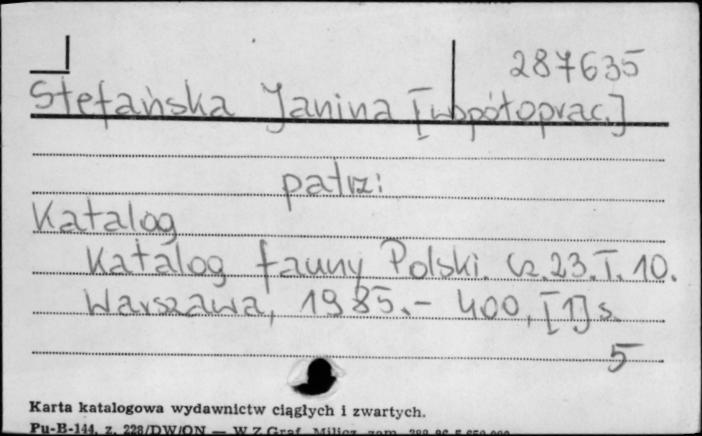 287635
Stefańska Janina [współoprac.]
patrz:
Katalog
Katalog fauny Polski. Cz. 23. T. 10.
Warszawa, 1985. – 400, [1] s.
5
Karta katalogowa wydawnictw ciągłych i zwartych.
Pu-B-144. z. 228/DW/ON — W.Z.Graf. Milicz zam.